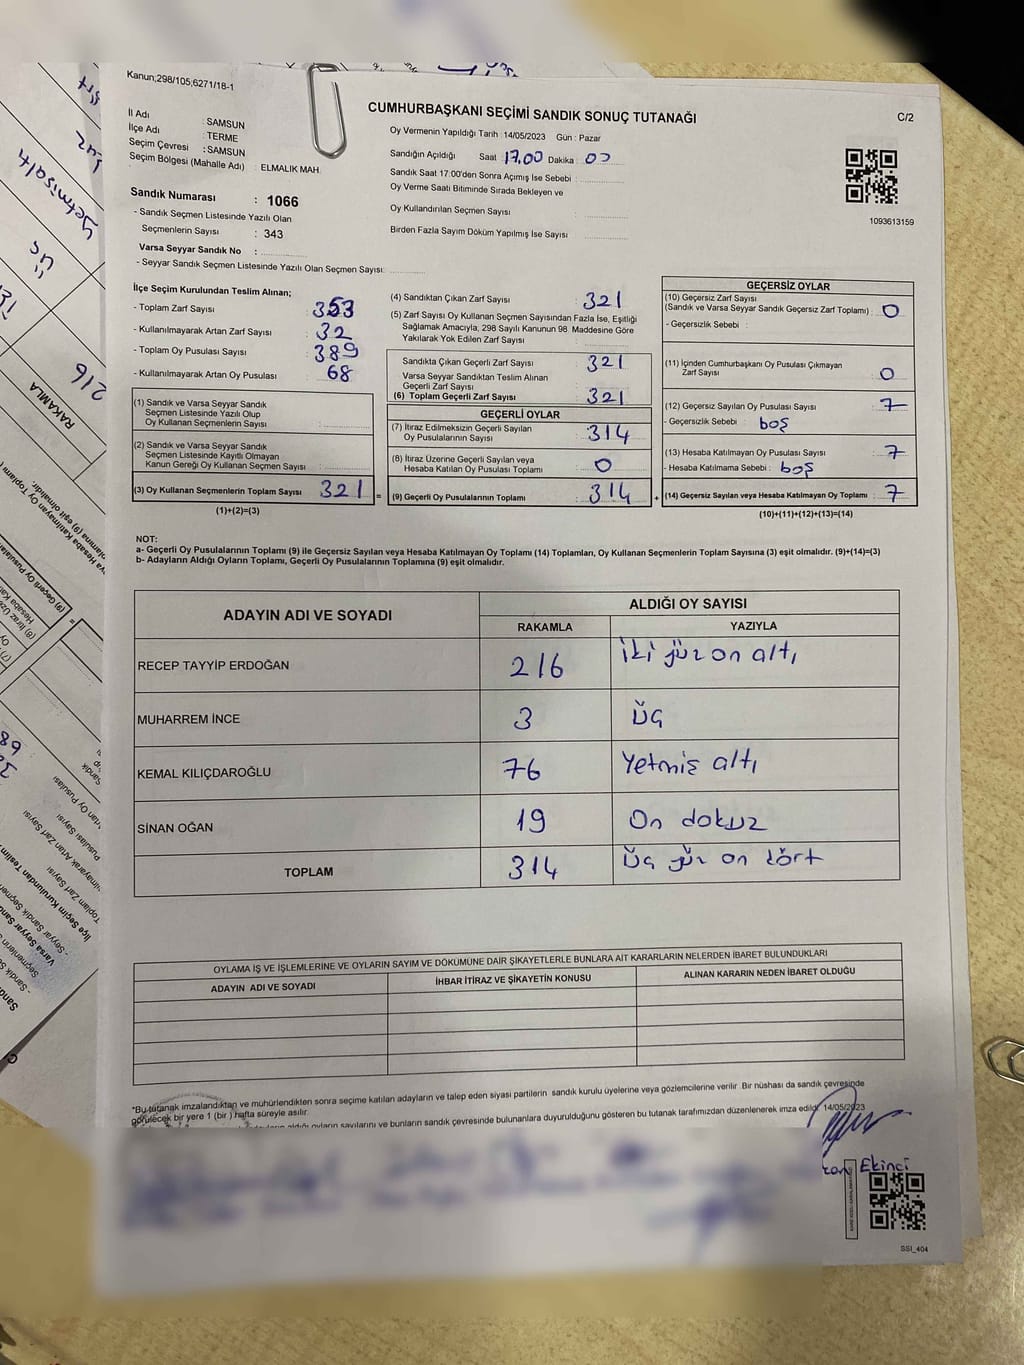 Kanun;298/105;6271/18-1
CUMHURBAŞKANI SEÇİMİ SANDIK SONUÇ TUTANAĞI
C/2
İl Adı : SAMSUN
İlçe Adı : TERME
Seçim Çevresi : SAMSUN
Seçim Bölgesi (Mahalle Adı) ELMALIK MAH.
Sandık Numarası : 1066
- Sandık Seçmen Listesinde Yazılı Olan
Seçmenlerin Sayısı : 343
Varsa Seyyar Sandık No :
- Seyyar Sandık Seçmen Listesinde Yazılı Olan Seçmen Sayısı:
Oy Vermenin Yapıldığı Tarih : 14/05/2023 Gün : Pazar
Sandığın Açıldığı Saat 17.00 Dakika : 00
Sandık Saat 17:00'den Sonra Açımış İse Sebebi :
Oy Verme Saati Bitiminde Sırada Bekleyen ve
Oy Kullandırılan Seçmen Sayısı :
Birden Fazla Sayım Döküm Yapılmış İse Sayısı
1093613159
İlçe Seçim Kurulundan Teslim Alınan;
- Toplam Zarf Sayısı : 353
- Kullanılmayarak Artan Zarf Sayısı : 32
- Toplam Oy Pusulası Sayısı : 389
- Kullanılmayarak Artan Oy Pusulası : 68
(1) Sandık ve Varsa Seyyar Sandık
Seçmen Listesinde Yazılı Olup
Oy Kullanan Seçmenlerin Sayısı :
(2) Sandık ve Varsa Seyyar Sandık
Seçmen Listesinde Kayıtlı Olmayan
Kanun Gereği Oy Kullanan Seçmen Sayısı :
(3) Oy Kullanan Seçmenlerin Toplam Sayısı 321 =
(1)+(2)=(3)
(4) Sandıktan Çıkan Zarf Sayısı : 321
(5) Zarf Sayısı Oy Kullanan Seçmen Sayısından Fazla İse, Eşitliği
Sağlamak Amacıyla, 298 Sayılı Kanunun 98. Maddesine Göre
Yakılarak Yok Edilen Zarf Sayısı :
Sandıkta Çıkan Geçerli Zarf Sayısı : 321
Varsa Seyyar Sandıktan Teslim Alınan
Geçerli Zarf Sayısı :
(6) Toplam Geçerli Zarf Sayısı : 321
GEÇERLİ OYLAR
(7) İtiraz Edilmeksizin Geçerli Sayılan
Oy Pusulalarının Sayısı : 314
(8) İtiraz Üzerine Geçerli Sayılan veya
Hesaba Katılan Oy Pusulası Toplamı : 0
(9) Geçerli Oy Pusulalarının Toplamı : 314 +
GEÇERSİZ OYLAR
(10) Geçersiz Zarf Sayısı
(Sandık ve Varsa Seyyar Sandık Geçersiz Zarf Toplamı) : 0
- Geçersizlik Sebebi :
(11) İçinden Cumhurbaşkanı Oy Pusulası Çıkmayan
Zarf Sayısı : 0
(12) Geçersiz Sayılan Oy Pusulası Sayısı : 7
- Geçersizlik Sebebi : boş
(13) Hesaba Katılmayan Oy Pusulası Sayısı : 7
- Hesaba Katılmama Sebebi : boş
(14) Geçersiz Sayılan veya Hesaba Katılmayan Oy Toplamı : 7
(10)+(11)+(12)+(13)=(14)
NOT:
a- Geçerli Oy Pusulalarının Toplamı (9) ile Geçersiz Sayılan veya Hesaba Katılmayan Oy Toplamı (14) Toplamları, Oy Kullanan Seçmenlerin Toplam Sayısına (3) eşit olmalıdır. (9)+(14)=(3)
b- Adayların Aldığı Oyların Toplamı, Geçerli Oy Pusulalarının Toplamına (9) eşit olmalıdır.
ADAYIN ADI VE SOYADI
ALDIĞI OY SAYISI
RAKAMLA YAZIYLA
RECEP TAYYİP ERDOĞAN 216 iki yüz on altı
MUHARREM İNCE 3 üç
KEMAL KILIÇDAROĞLU 76 Yetmiş altı
SİNAN OĞAN 19 On dokuz
TOPLAM 314 üç yüz on dört
OYLAMA İŞ VE İŞLEMLERİNE VE OYLARIN SAYIM VE DÖKÜMÜNE DAİR ŞİKAYETLERLE BUNLARA AİT KARARLARIN NELERDEN İBARET BULUNDUKLARI
ADAYIN ADI VE SOYADI İHBAR İTİRAZ VE ŞİKAYETİN KONUSU ALINAN KARARIN NEDEN İBARET OLDUĞU
*Bu tutanak imzalandıktan ve mühürlendikten sonra seçime katılan adayların ve talep eden siyasi partilerin sandık kurulu üyelerine veya gözlemcilerine verilir. Bir nüshası da sandık çevresinde
görülecek bir yere 1 (bir) hafta süreyle asılır.
aldığı oyların sayılarını ve bunların sandık çevresinde bulunanlara duyurulduğunu gösteren bu tutanak tarafımızdan düzenlenerek imza edildi. 14/05/2023
Ekinci
SSI_404
Yetmişaltı
üç
216
RAKAMLA